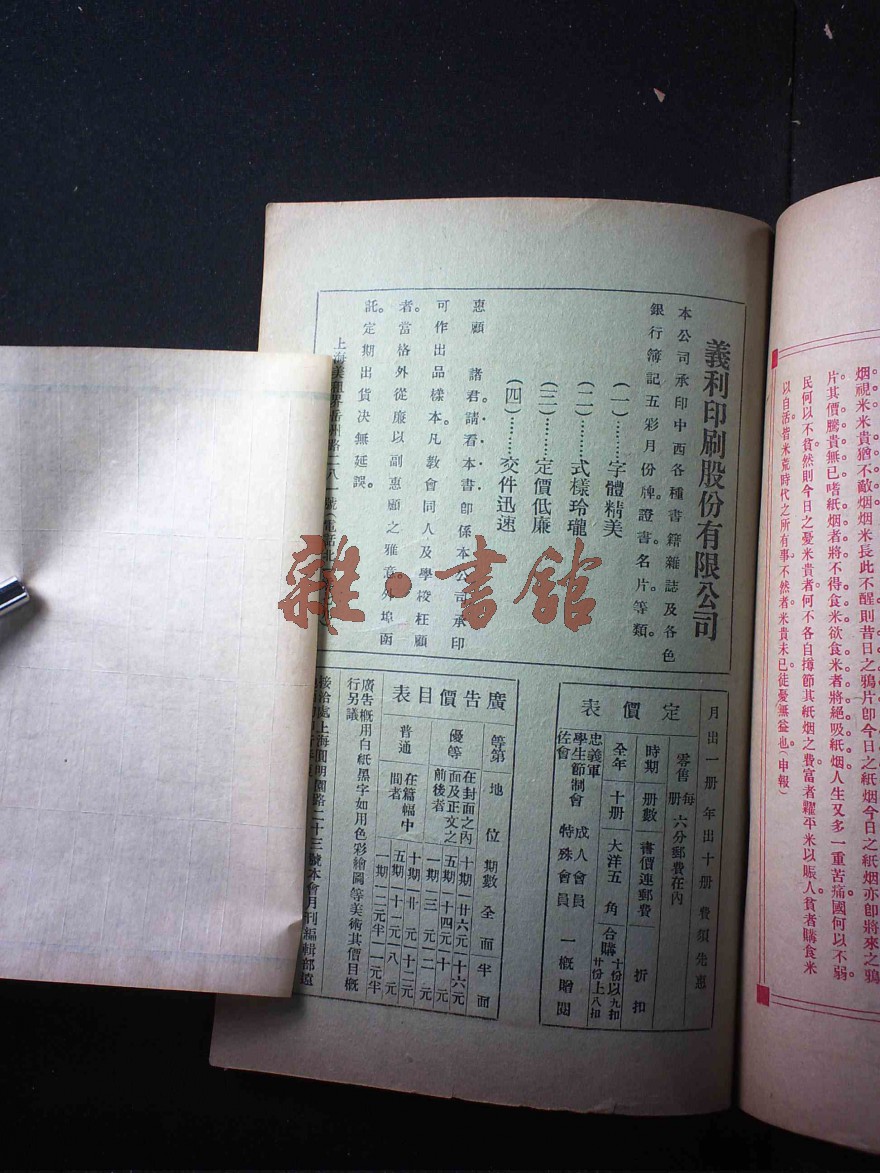 烟。視米米貴猶不敵烟烟米長此不醒則昔日之鴉片卽今日之紙烟今日之紙烟亦卽將來之鴉
片其價騰貴無已嗜紙烟者將不得食米欲食米者將絕吸紙烟人生又多一重苦痛國何以不弱
民何以不貧然則今日之憂米貴者何不各自撙節其紙烟之費富者糶平米以賑人貧者購食米
以自活皆米荒時代之所有事不然者米貴未已徒憂無益也（申報）
義利印刷股份有限公司
本公司承印中西各種書籍雜誌及各色
銀行簿記五彩月份牌證書名片等類。
（一）………字體精美
（二）………式樣玲瓏
（三）………定價低廉
（四）………交件迅速
惠顧　諸君。請看本書卽係本公司承印
可作出品樣本。凡教會同人及學校枉顧
者。當格外從廉以副惠顧之雅意。外埠函
託。定期出貨決無延誤。
雜·書館
定價表
月出一册　年出十册　費須先惠
零售　每册　六分郵費在內
時期　册數　書價連郵費　折扣
全年　十册　大洋五角　合購　十份以上九扣　廿份以上八扣
忠義軍　學生節制會　佐會　成人會員　特殊會員　一概贈閱
廣告價目表
等第　地位　期數　全面　半面
優等　在封面之內面及正文之前後者　十期　廿六元　十六元
五期　十四元　十元
一期　三元　二元
普通　在篇幅中間者　十期　廿元　十二元
五期　十一元　八元
一期　二元半　一元半
廣告概用白紙黑字如用色彩繪圖等美術其價目概
行另議
接洽處上海圓明園路二十三號本會月刊編輯部